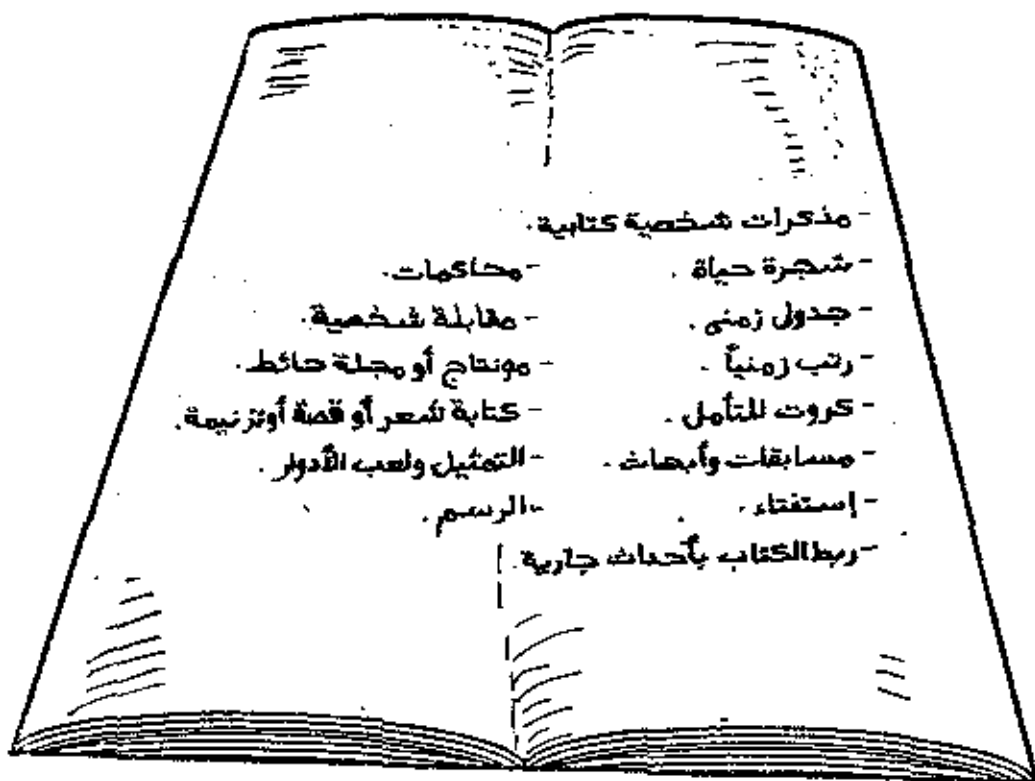 - مذكرات شخصية كتابية.
- شجرة حياة.
- جدول زمنى.
- رتب زمنياً.
- كروت للتأمل.
- مسابقات وأبحاث.
- إستفتاء.
- ربط الكتاب بأحداث جارية.
- محاكمات.
- مقابلة شخصية.
- مونتاج أو مجلة حائط.
- كتابة شعر أو قصة أو ترنيمة.
- التمثيل ولعب الأدوار.
- الرسم.